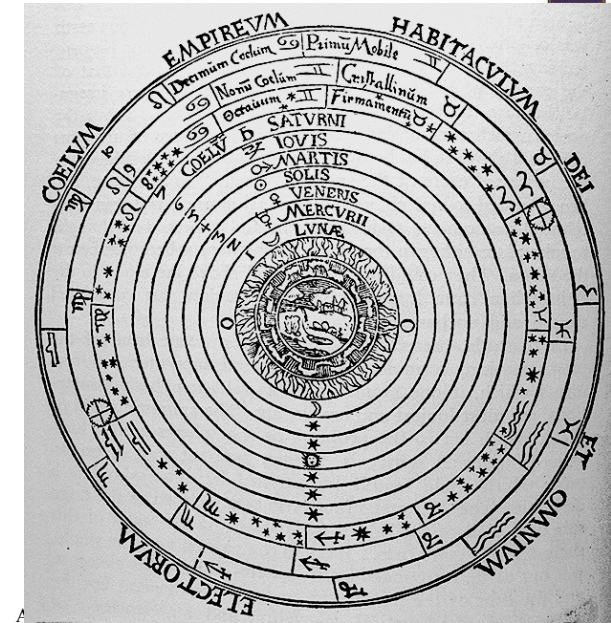 COELVM EMPIREVM HABITACVLVM DEI ET OMNIVM ELECTORVM
Decimum Coelum Primū Mobile
Nonū Coelum Cristallinum
Octauum Firmamentū
COELV̄ SATVRNI
IOVIS
MARTIS
SOLIS
VENERIS
MERCVRII
LVNÆ
8
7
6
5
4
3
2
1
A